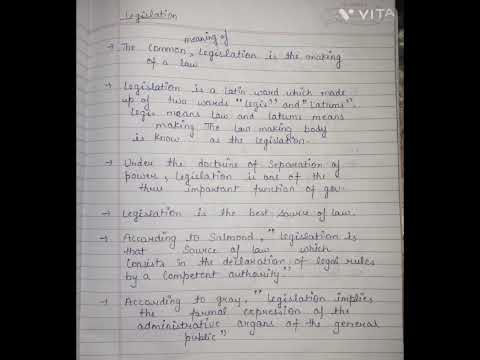 VITA
Legislation
meaning of
→ The Common, Legislation is the making
of a law
→ Legislation is a Latin word which made
up of two words "Legis" and "Latums".
Legis means Law and latums means
making The Law making body
is know as the legislation.
→ Under the doctrine of Separation of
power, Legislation is one of the
thus important function of gov.
→ Legislation is the best source of law.
→ According to Salmond, "Legislation is
that Source of law which
Consists in the declaration of legal rules
by a Competent authority"
→ According to gray, "Legislation implies
the formal expression of the
administrative organs of the general
public"